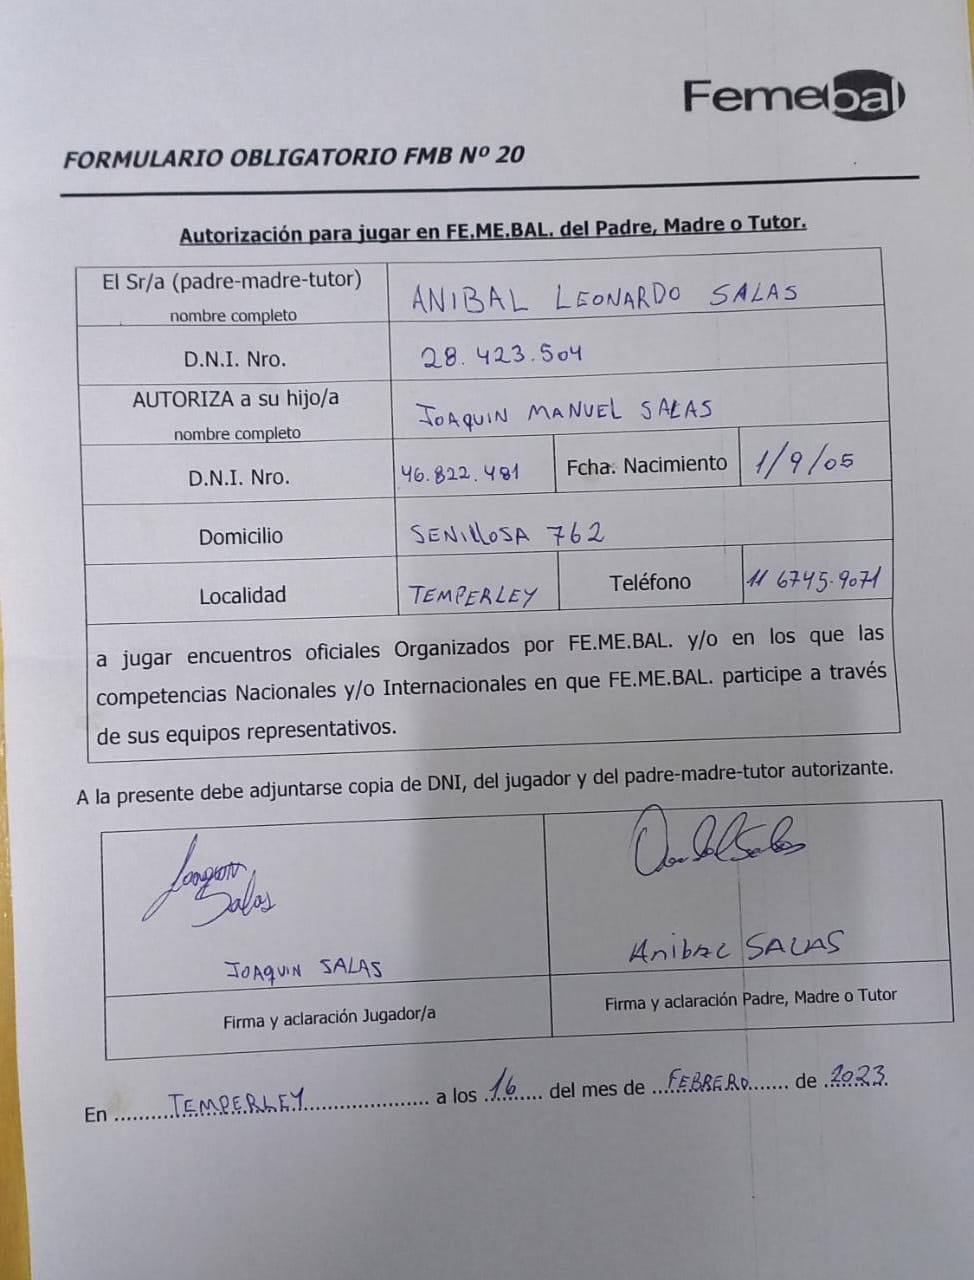 Femebal
FORMULARIO OBLIGATORIO FMB Nº 20
Autorización para jugar en FE.ME.BAL. del Padre, Madre o Tutor.
El Sr/a (padre-madre-tutor)
nombre completo
ANIBAL LEONARDO SALAS
D.N.I. Nro.
28.423.504
AUTORIZA a su hijo/a
nombre completo
JOAQUIN MANUEL SALAS
D.N.I. Nro.
46.822.481
Fcha. Nacimiento
1/9/05
Domicilio
SENILLOSA 762
Localidad
TEMPERLEY
Teléfono
11 6745.9071
a jugar encuentros oficiales Organizados por FE.ME.BAL. y/o en los que las
competencias Nacionales y/o Internacionales en que FE.ME.BAL. participe a través
de sus equipos representativos.
A la presente debe adjuntarse copia de DNI, del jugador y del padre-madre-tutor autorizante.
Joaquin
Salas
JOAQUIN SALAS
Firma y aclaración Jugador/a
Anibal SALAS
Firma y aclaración Padre, Madre o Tutor
En TEMPERLEY a los 16 del mes de FEBRERO de 2023